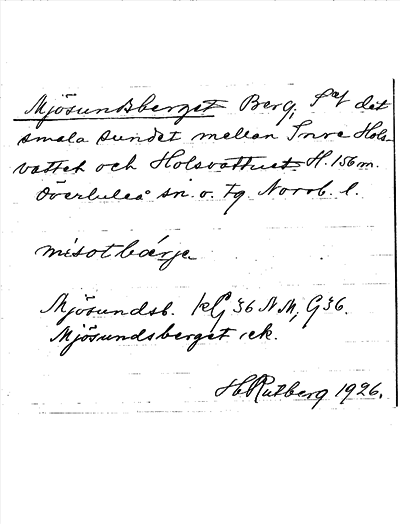 Mjösundsberget Berg, S af det
smala sundet mellan Inre Hols-
vattet och Holsvattnet H. 156 m.
Överluleå sn. o. tg. Norrb. l.
misotbärje
Mjösundsb. kG 36 NM, G 36.
Mjösundsberget ek.
H Rutberg 1926.